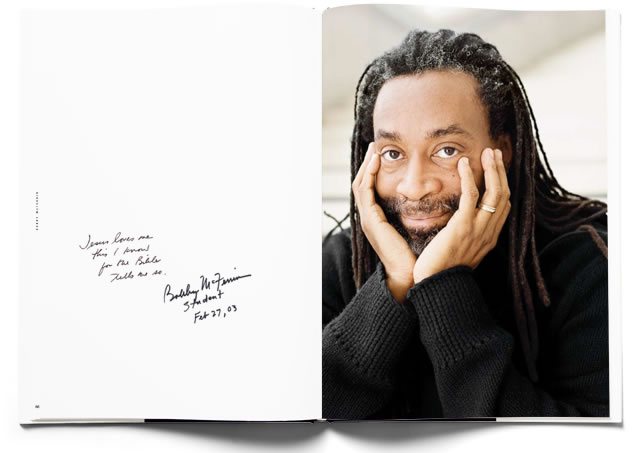 BOBBY MCFERRIN
Jesus loves me
this I know
for the Bible
tells me so.
Bobby McFerrin
Student
Feb 27, 03